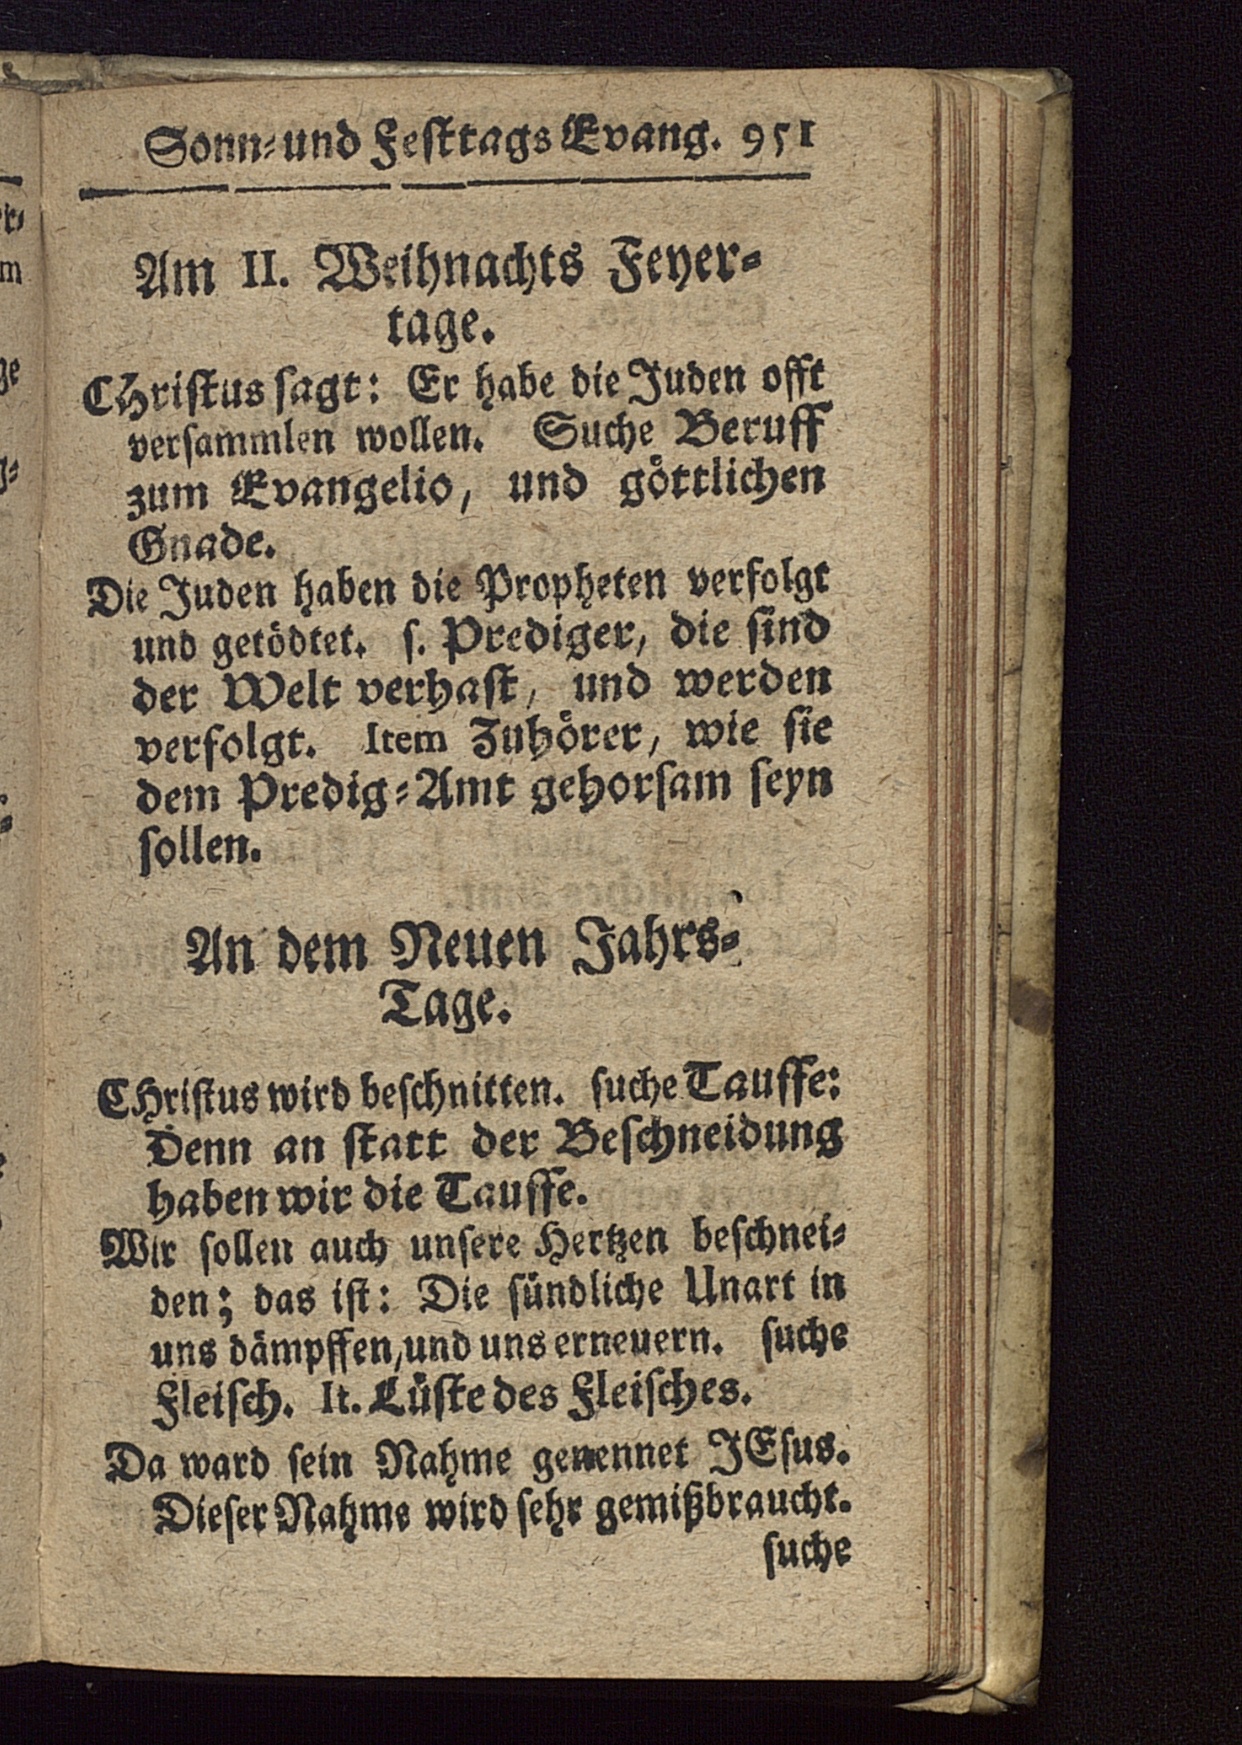 Sonn- und Festtags Evang. 951
Am II. Weihnachts Feyer-
tage.
CHristus sagt: Er habe die Juden offt
versammlen wollen. Suche Beruff
zum Evangelio, und göttlichen
Gnade.
Die Juden haben die Propheten verfolgt
und getödtet. s. Prediger, die sind
der Welt verhast, und werden
verfolgt. Item Zuhörer, wie sie
dem Predig-Amt gehorsam seyn
sollen.
An dem Neuen Jahrs-
Tage.
CHristus wird beschnitten. suche Tauffe:
Denn an statt der Beschneidung
haben wir die Tauffe.
Wir sollen auch unsere Hertzen beschnei-
den; das ist: Die sündliche Unart in
uns dämpffen, und uns erneuern. suche
Fleisch. It. Lüste des Fleisches.
Da ward sein Nahme genennet JEsus.
Dieser Nahme wird sehr gemißbraucht.
suche